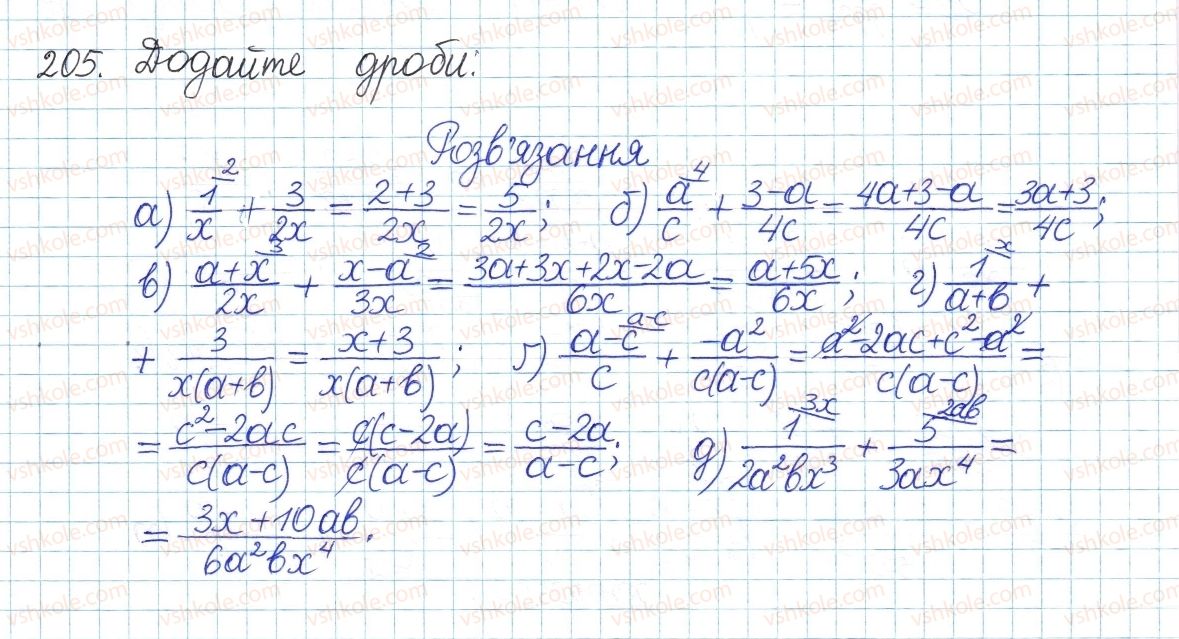 205. Додайте дроби:
Розв'язання
а) 1/x ^2 + 3/2x = (2+3)/2x = 5/2x; б) a/c ^4 + (3-a)/4c = (4a+3-a)/4c = (3a+3)/4c;
в) (a+x)/2x ^3 + (x-a)/3x ^2 = (3a+3x+2x-2a)/6x = (a+5x)/6x; г) 1/(a+b) ^x +
+ 3/x(a+b) = (x+3)/x(a+b); ґ) (a-c)/c ^a-c + -a²/c(a-c) = (a²-2ac+c²-a²)/c(a-c) =
= (c²-2ac)/c(a-c) = c(c-2a)/c(a-c) = (c-2a)/(a-c); д) 1/2a²bx³ ^3x + 5/3ax⁴ ^2ab =
= (3x+10ab)/6a²bx⁴.